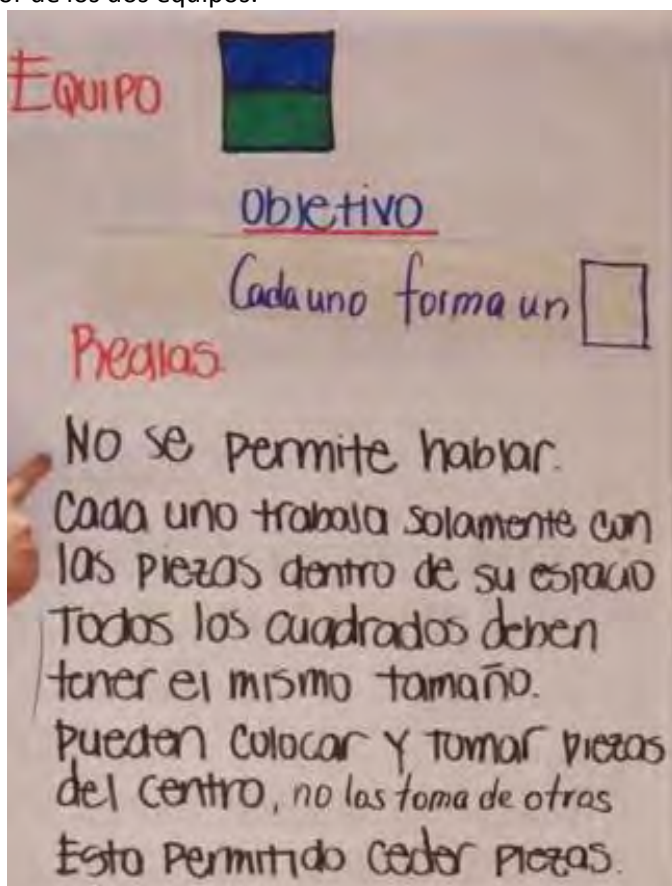 or de los dos equipos.
EQUIPO
Objetivo
Cada uno forma un
Reglas.
No se permite hablar.
Cada uno trabaja solamente con
las piezas dentro de su espacio
Todos los cuadrados deben
tener el mismo tamaño.
pueden colocar y tomar piezas
del centro, no las toma de otros
Esta permitido ceder piezas.